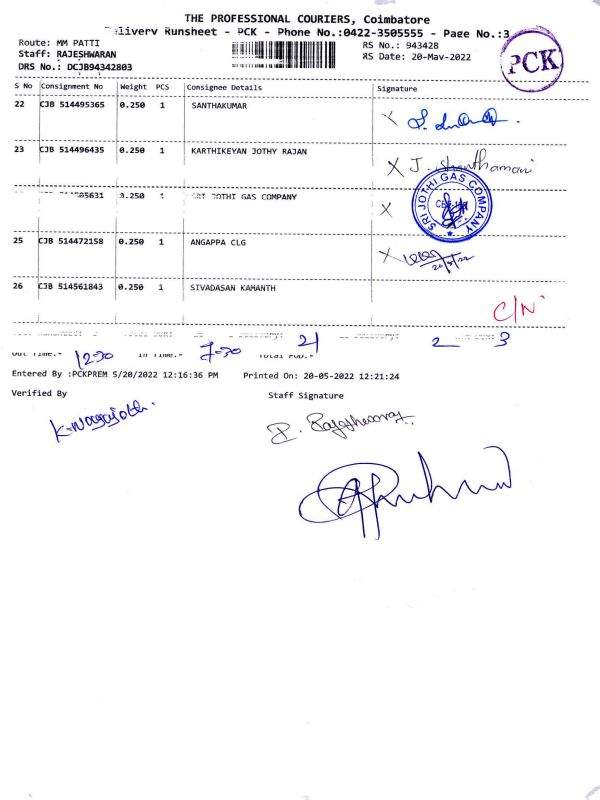 THE PROFESSIONAL COURIERS, Coimbatore
Delivery Runsheet - PCK - Phone No.:0422-3505555 - Page No.:3
Route: MM PATTI
RS No.: 943428
Staff: RAJESHWARAN
RS Date: 20-May-2022
DRS No.: DCJB94342803
PCK
S No Consignment No Weight PCS Consignee Details Signature
22 CJB 514495365 0.250 1 SANTHAKUMAR
23 CJB 514496435 0.250 1 KARTHIKEYAN JOTHY RAJAN X J. Shanthamani
5631 0.250 1 SRI JOTHI GAS COMPANY X
SRI JOTHI GAS COMPANY
25 CJB 514472158 0.250 1 ANGAPPA CLG X 20/5/22
26 CJB 514561843 0.250 1 SIVADASAN KAMANTH C/N
21 2 3
Out Time.- 12-30 In Time.- 7-30 Total POD.-
Entered By :PCKPREM 5/20/2022 12:16:36 PM Printed On: 20-05-2022 12:21:24
Verified By Staff Signature
K. Nagajothi. P. Rajeshwaran